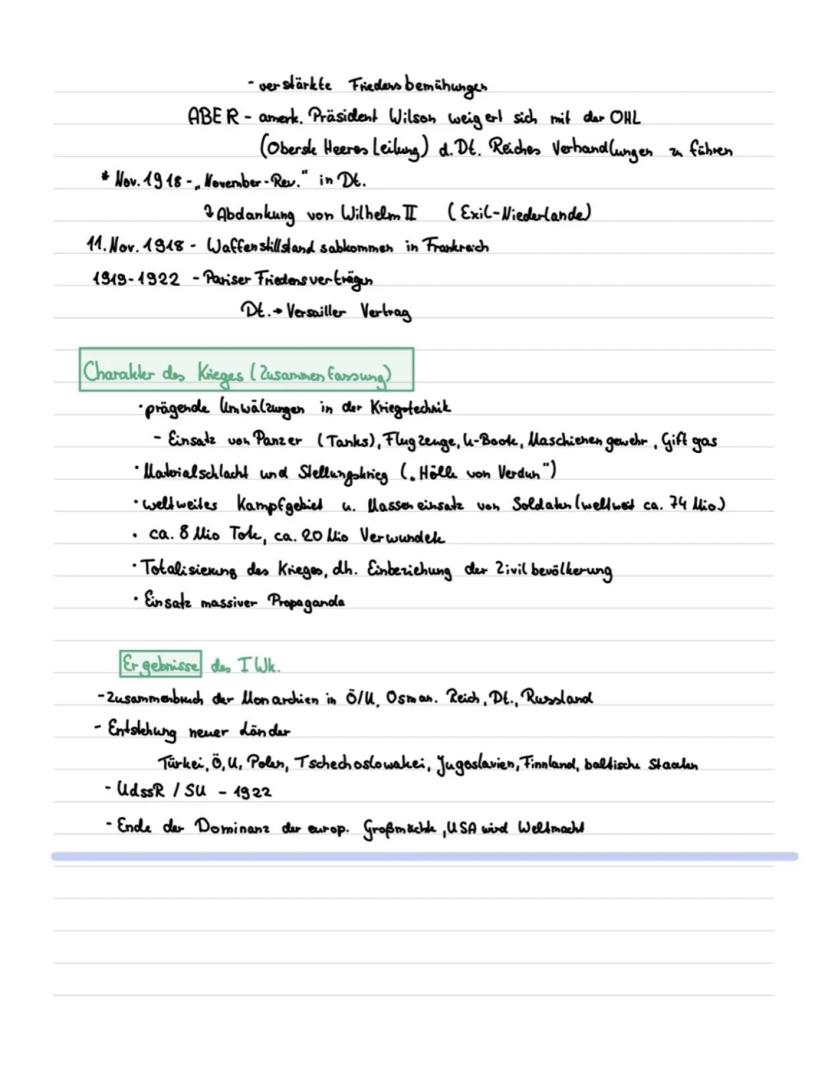 - verstärkte Friedensbemühungen
ABER - amerk. Präsident Wilson weigert sich mit der OHL
(Oberste Heeres Leitung) d. Dt. Reiches Verhandlungen zu führen
* Nov. 1918 - „November-Rev." in Dt.
↳ Abdankung von Wilhelm II (Exil-Niederlande)
11. Nov. 1918 - Waffenstillstandsabkommen in Frankreich
1919-1922 - Pariser Friedensverträgen
Dt. → Versailler Vertrag
Charakter des Krieges (Zusammenfassung)
• prägende Umwälzungen in der Kriegstechnik
- Einsatz von Panzer (Tanks), Flugzeuge, U-Boote, Maschienengewehr, Giftgas
• Materialschlacht und Stellungskrieg („Hölle von Verdun")
• weltweites Kampfgebiet u. Masseneinsatz von Soldaten (weltweit ca. 74 Mio.)
• ca. 8 Mio Tote, ca. 20 Mio Verwundete
• Totalisierung des Krieges, dh. Einbeziehung der Zivilbevölkerung
• Einsatz massiver Propaganda
Ergebnisse des I Wk.
- Zusammenbruch der Monarchien in Ö/U, Osman. Reich, Dt., Russland
- Entstehung neuer Länder
Türkei, Ö, U, Polen, Tschechoslowakei, Jugoslavien, Finnland, baltische Staaten
- UdssR / SU - 1922
- Ende der Dominanz der europ. Großmächte, USA wird Weltmacht